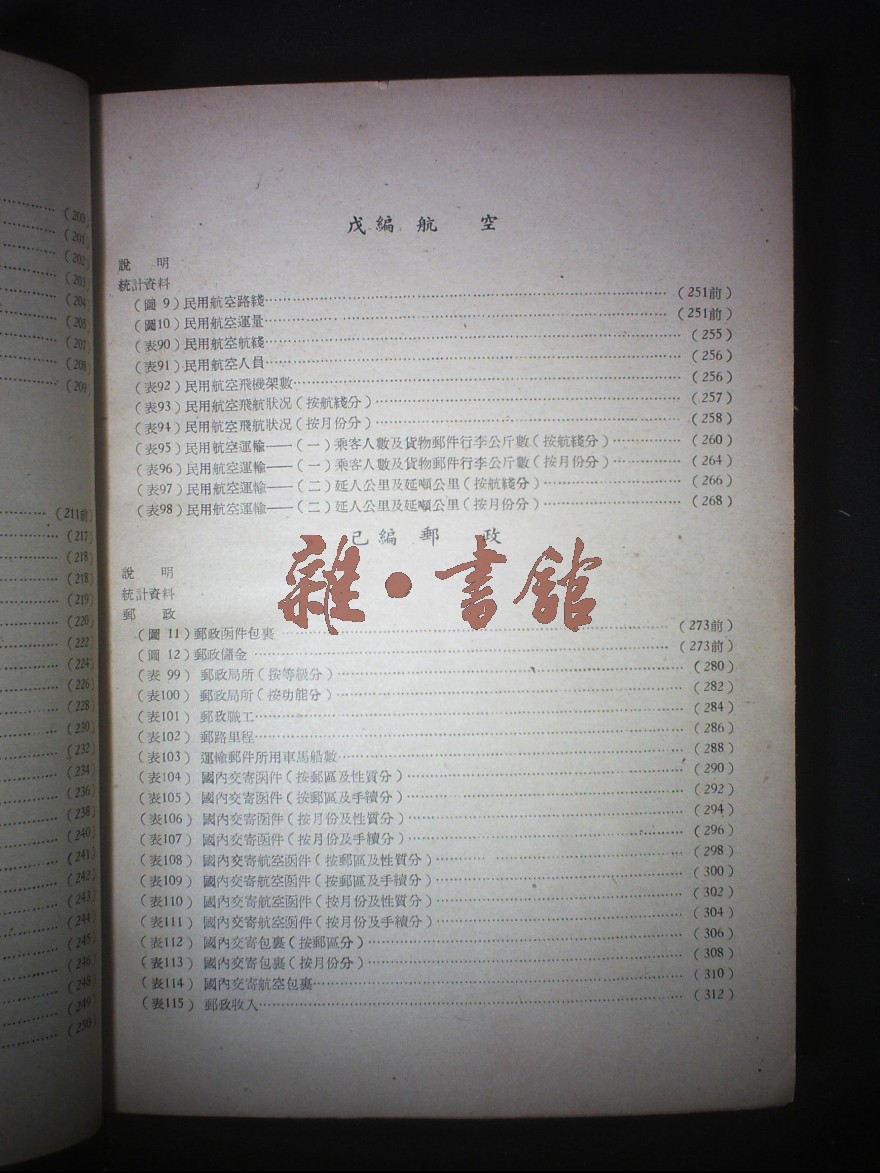 (200)
(201)
(202)
(203)
(204)
(205)
(207)
(208)
(209)
(211前)
(217)
(218)
(218)
(219)
(220)
(222)
(224)
(226)
(228)
(230)
(232)
(234)
(236)
(238)
(240)
(241)
(242)
(243)
(244)
(245)
(246)
(248)
(249)
(250)
戊編 航 空
說 明
統計資料
(圖 9)民用航空路綫…(251前)
(圖10)民用航空運量…(251前)
(表90)民用航空航綫…(255)
(表91)民用航空人員…(256)
(表92)民用航空飛機架數…(256)
(表93)民用航空飛航狀况(按航綫分)…(257)
(表94)民用航空飛航狀况(按月份分)…(258)
(表95)民用航空運輸——(一)乘客人數及貨物郵件行李公斤數(按航綫分)…(260)
(表96)民用航空運輸——(一)乘客人數及貨物郵件行李公斤數(按月份分)…(264)
(表97)民用航空運輸——(二)延人公里及延噸公里(按航綫分)…(266)
(表98)民用航空運輸——(二)延人公里及延噸公里(按月份分)…(268)
已編 郵 政
說 明
統計資料
郵 政
雜·書館
(圖 11)郵政函件包裹…(273前)
(圖 12)郵政儲金…(273前)
(表 99) 郵政局所(按等級分)…(280)
(表100) 郵政局所(按功能分)…(282)
(表101) 郵政職工…(284)
(表102) 郵路里程…(286)
(表103) 運輸郵件所用車馬船數…(288)
(表104) 國內交寄函件(按郵區及性質分)…(290)
(表105) 國內交寄函件(按郵區及手續分)…(292)
(表106) 國內交寄函件(按月份及性質分)…(294)
(表107) 國內交寄函件(按月份及手續分)…(296)
(表108) 國內交寄航空函件(按郵區及性質分)…(298)
(表109) 國內交寄航空函件(按郵區及手續分)…(300)
(表110) 國內交寄航空函件(按月份及性質分)…(302)
(表111) 國內交寄航空函件(按月份及手續分)…(304)
(表112) 國內交寄包裹(按郵區分)…(306)
(表113) 國內交寄包裹(按月份分)…(308)
(表114) 國內交寄航空包裹…(310)
(表115) 郵政收入…(312)